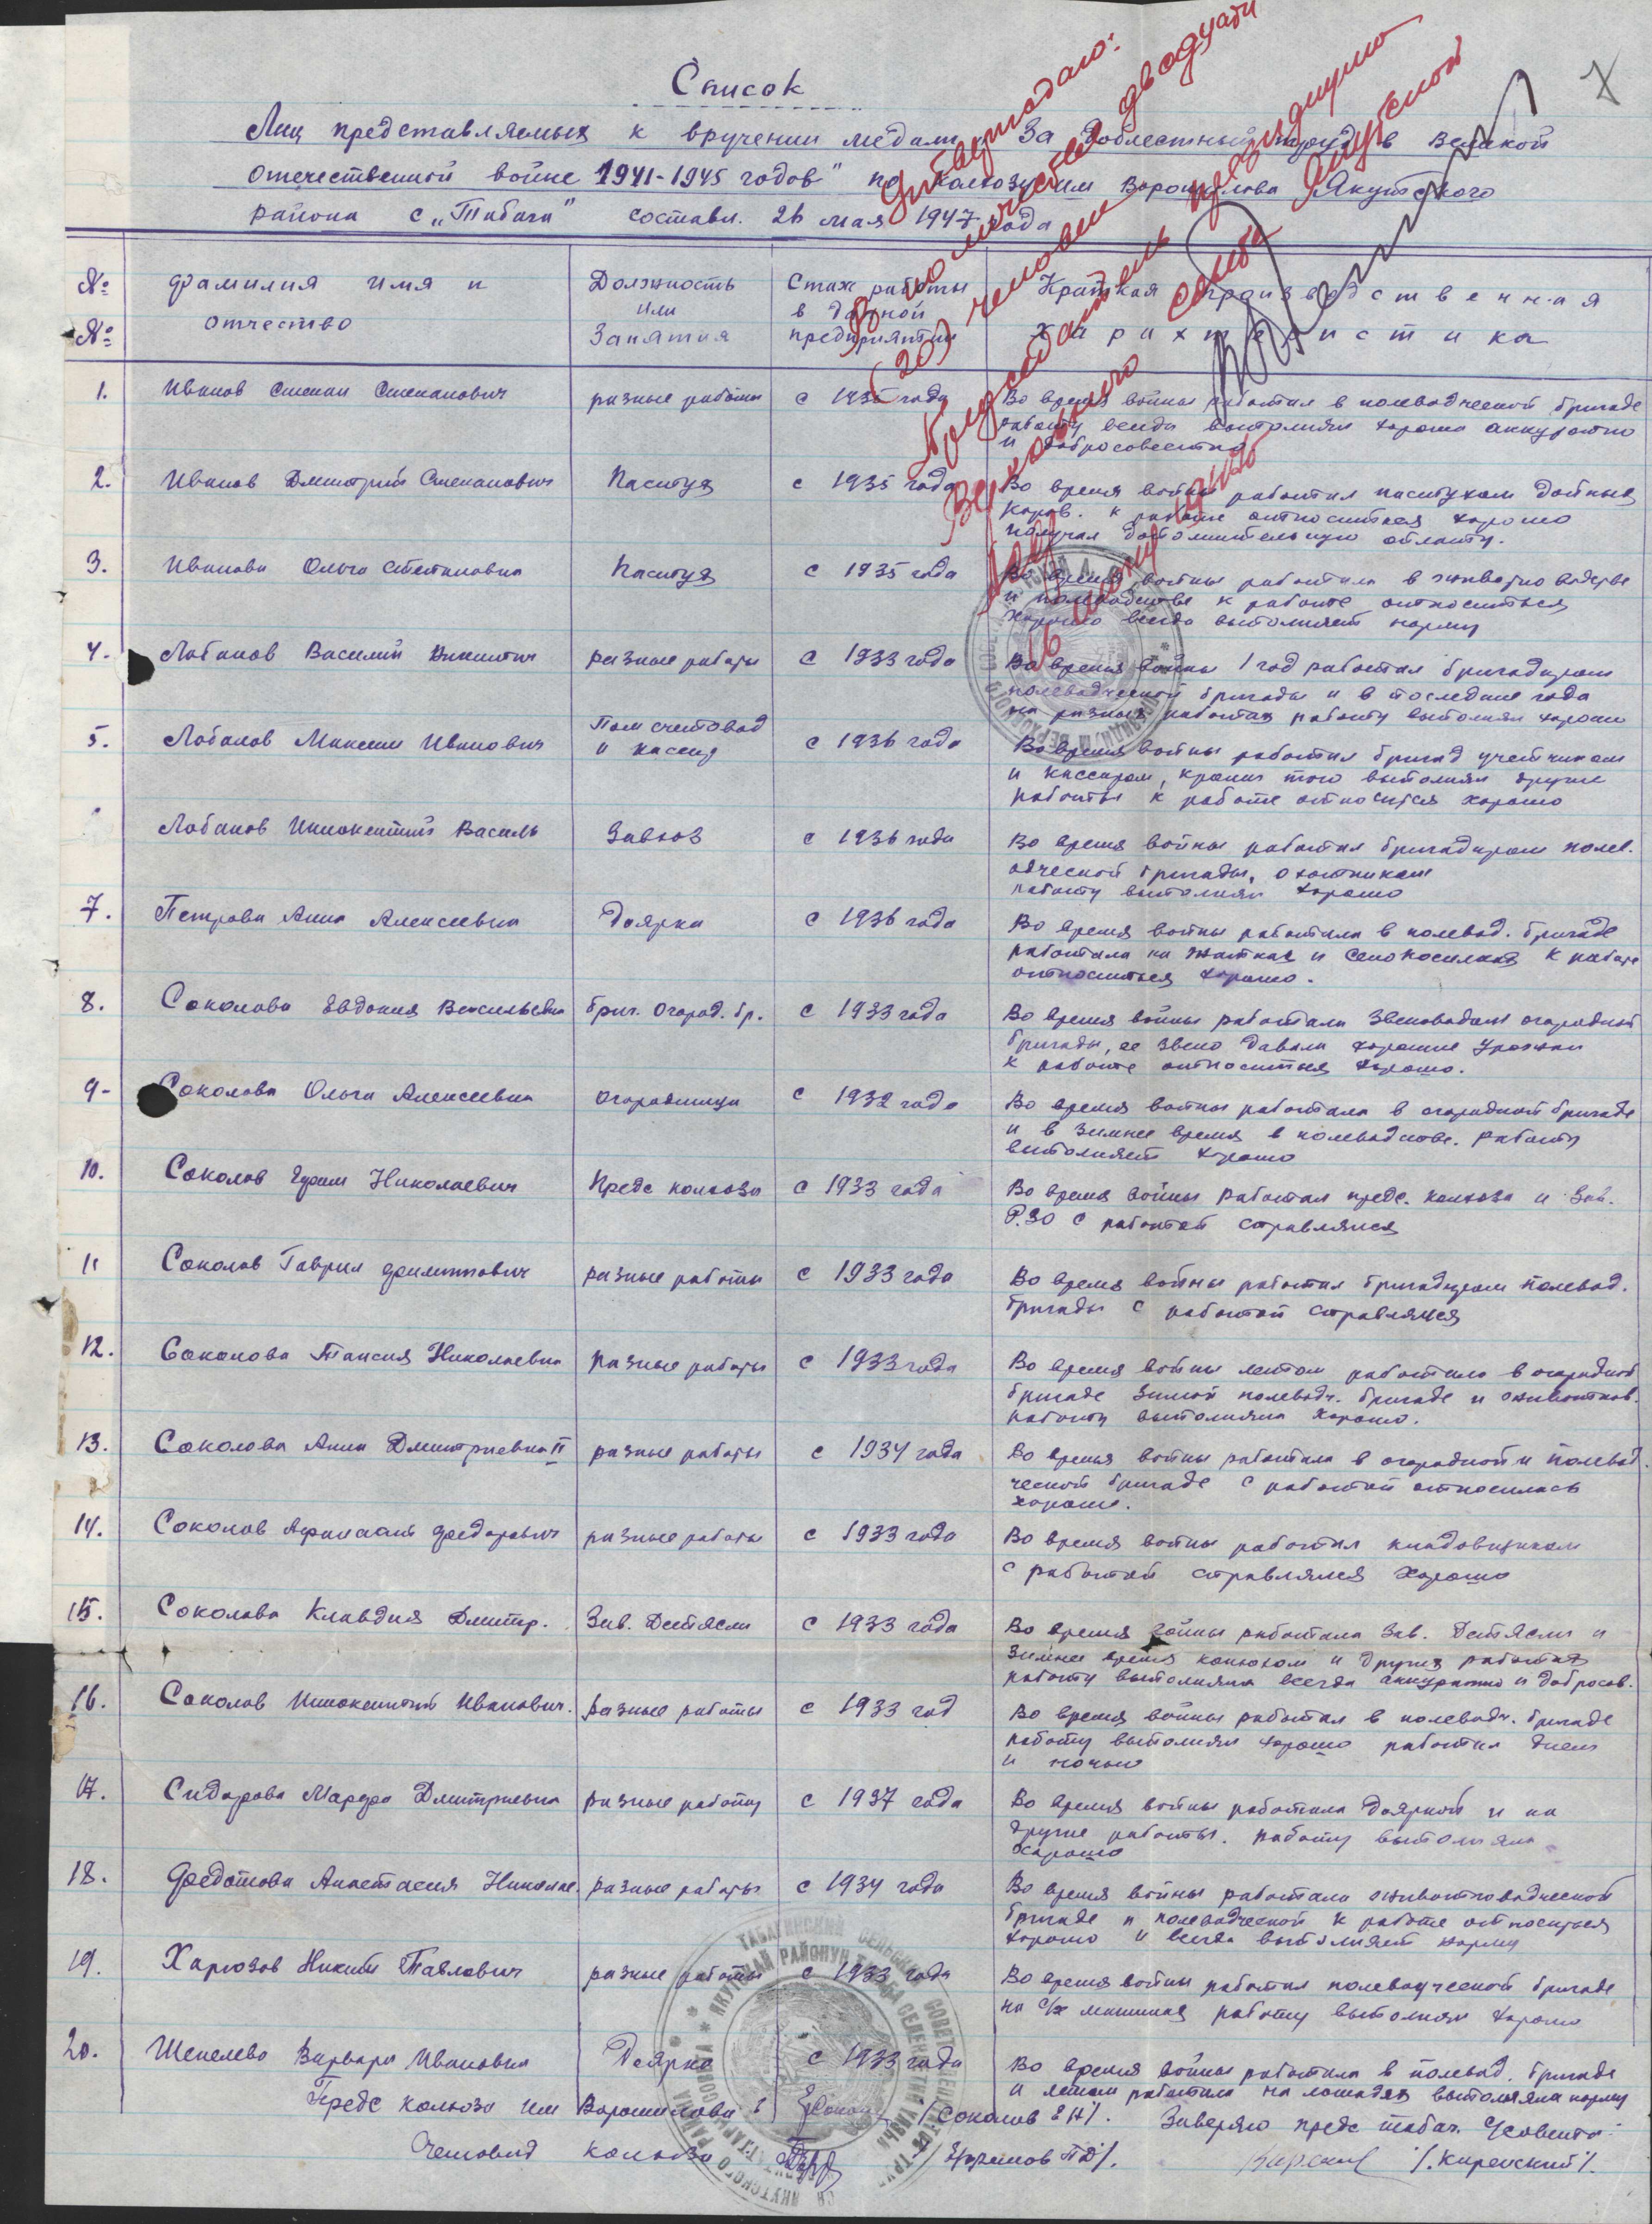 Список
Лиц представляемых к вручении медали „За доблестный труд в Великой
отечественной войне 1941-1945 годов" по колхозу им Ворошилова Якутского
района с „Табага" составл. 26 мая 1947 года
Утверждаю:
в количестве двадцати
(20) человек
Председатель президиума
Верховного Совета Якутской
№ №
Фамилия имя и отчество
Должность или Занятия
Стаж работы в данной предприятии
Краткая производственная характеристика
1. Иванов Степан Степанович разные работы с 1935 года Во время войны работал в полеводческой бригаде
работу всегда выполнял хорошо аккуратно
и добросовестно
2. Иванов Дмитрий Степанович Пастух с 1935 года Во время войны работал пастухом дойных
коров. к работе относится хорошо
получал дополнительную оплату.
3. Иванова Ольга Степановна Пастух с 1935 года Во время войны работала в животноводстве
и полеводстве к работе относиться
хорошо всегда выполняет норму
4. Лобанов Василий Никитич разные работы с 1933 года Во время войны 1 год работал бригадиром
полеводческой бригады и в последние года
на разных работах работу выполнял хорошо
5. Лобанов Максим Иванович Пом счетовод
и кассир с 1936 года Во время войны работал бригад учетчиком
и кассиром, кроме того выполнял другие
работы к работе относится хорошо
Лобанов Иннокентий Василь Завхоз с 1936 года Во время войны работал бригадиром полев.
одческой бригады, охотником
работу выполнял хорошо
7. Петрова Анна Алексеевна Доярка с 1936 года Во время войны работала в полевод. бригаде
работала на жатках и сенокосилках к работе
относиться хорошо.
8. Соколова Евдокия Васильевна бриг. Огород. бр. с 1933 года Во время войны работала звеноводом огородной
бригады, ее звено давала хорошие урожаи
к работе относиться хорошо.
9- Соколова Ольга Алексеевна огородница с 1932 года Во время войны работала в огородной бригаде
и в зимнее время в полеводстве. работу
выполняет хорошо
10. Соколов Ефим Николаевич Предс колхоза с 1933 года Во время войны работал предс. колхоза и Зав.
РЗО с работой справлялся
11 Соколов Гаврил Филиппович разные работы с 1933 года Во время войны работал бригадиром полевод.
бригады с работой справлялся
12. Соколова Таисия Николаевна разные работы с 1933 года Во время войны летом работала в огородной
бригаде зимой полеводч. бригаде и животнов.
работу выполняла хорошо.
13. Соколова Анна Дмитриевна II разные работы с 1934 года Во время войны работала в огородной и полевод.
ческой бригаде с работой относилась
хорошо.
14. Соколов Афанасий Федорович разные работы с 1933 года Во время войны работал кладовщиком
с работой справлялся хорошо
15. Соколова Клавдия Дмитр. Зав. Детясли с 1933 года Во время войны работала Зав. Детясли и
зимнее время конюхом и других работах
работу выполняла всегда аккуратно и добросов.
16. Соколов Иннокентий Иванович. разные работы с 1933 год Во время войны работал в полеводч. бригаде
работу выполнял хорошо работал днем
и ночью
17. Сидорова Марфа Дмитриевна разные работы с 1937 года Во время войны работала Дояркой и на
другие работы. работу выполняла
хорошо
18. Федотова Анастасия Николае. разные работы с 1934 года Во время войны работала животноводческой
бригаде и полеводческой к работе относиться
хорошо и всегда выполняет норму
19. Харюзов Никит Павлович разные работы с 1933 года Во время войны работал полеводческой бригаде
на с/х машинах работу выполнял хорошо
20. Шепелева Варвара Ивановна Доярка с 1933 года Во время войны работала в полевод. бригаде
и летом работала на лошадях выполняла норму
Предс колхоза им Ворошилова: /Соколов ЕН/. Заверяю предс табаг. с/совета:
Счетовод колхоза /Ефремов ПД/. /.Киренский/.